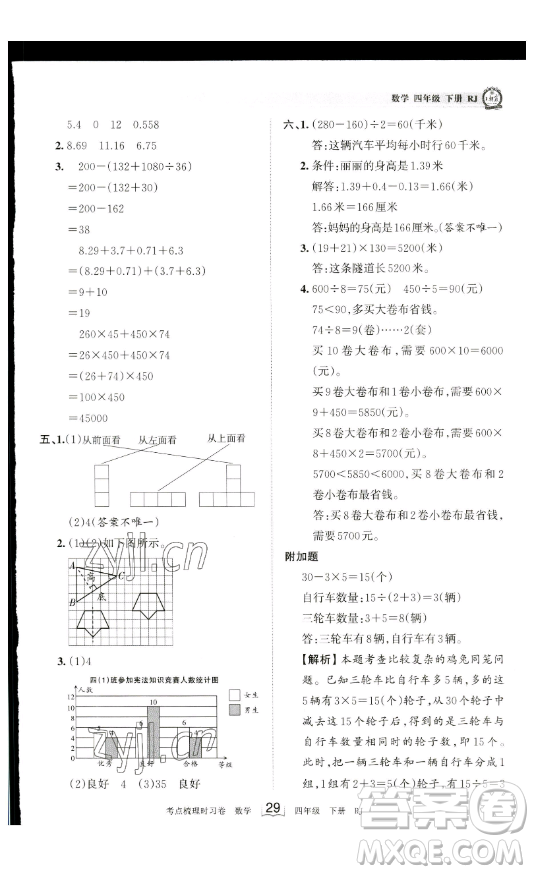 数学 四年级 下册 RJ
5.4 0 12 0.558
2. 8.69 11.16 6.75
3. 200-(132+1080÷36)
=200-(132+30)
=200-162
=38
8.29+3.7+0.71+6.3
=(8.29+0.71)+(3.7+6.3)
=9+10
=19
260×45+450×74
=26×450+450×74
=(26+74)×450
=100×450
=45000
五、1. (1)从前面看 从左面看 从上面看
(2)4(答案不唯一)
2. (1)(2)如下图所示。
A
C
B
高
底
3. (1)4
四(1)班参加宪法知识竞赛人数统计图
人数
女生
男生
12
10
8
6
4
2
0
4
10
4
优秀 良好 合格 等级
(2)良好 4 (3)35 良好
六、1. (280-160)÷2=60(千米)
答:这辆汽车平均每小时行60千米。
2. 条件:丽丽的身高是1.39米
解答:1.39+0.4-0.13=1.66(米)
1.66米=166厘米
答:妈妈的身高是166厘米。(答案不唯一)
3. (19+21)×130=5200(米)
答:这条隧道长5200米。
4. 600÷8=75(元) 450÷5=90(元)
75<90,多买大卷布省钱。
74÷8=9(卷)……2(套)
买10卷大卷布,需要600×10=6000
(元)。
买9卷大卷布和1卷小卷布,需要600
×9+450=5850(元)。
买8卷大卷布和2卷小卷布,需要600
×8+450×2=5700(元)。
5700<5850<6000,买8卷大卷布和2
卷小卷布最省钱。
答:买8卷大卷布和2卷小卷布最省钱,
需要5700元。
附加题
30-3×5=15(个)
自行车数量:15÷(2+3)=3(辆)
三轮车数量:3+5=8(辆)
答:三轮车有8辆,自行车有3辆。
【解析】本题考查比较复杂的鸡兔同笼问
题。已知三轮车比自行车多5辆,多出的这
5辆有3×5=15(个)轮子,从30个轮子中
减去这15个轮子后,得到的是三轮车与
自行车数量相同时的轮子数,因此把1辆
三轮车与1辆自行车看作1组,
组,1组有2+3=5(个)轮子,15÷5=3
zyjl.cn
zyjl.cn
答案圈
考点梳理时习卷 数学 29 四年级 下册 RJ